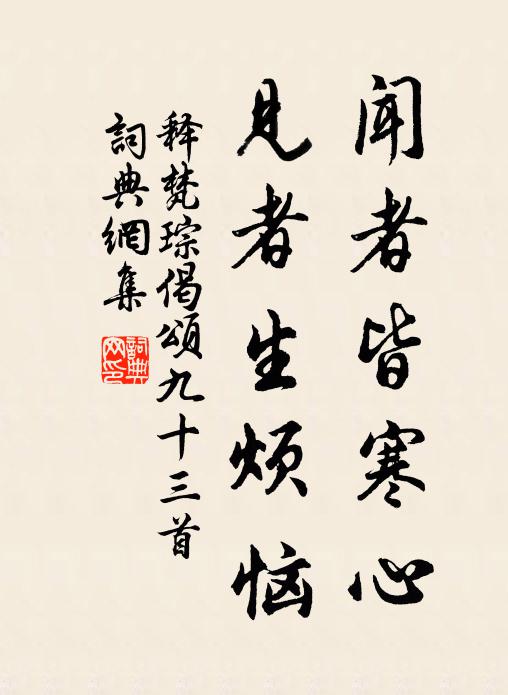 闻者皆寒心
见者生烦恼
释梵琮偈颂九十三首
詞典網集
詞典网印